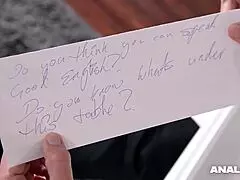 Do you think you can speak
Good English?
Do you know whats under
this table?
ANAL